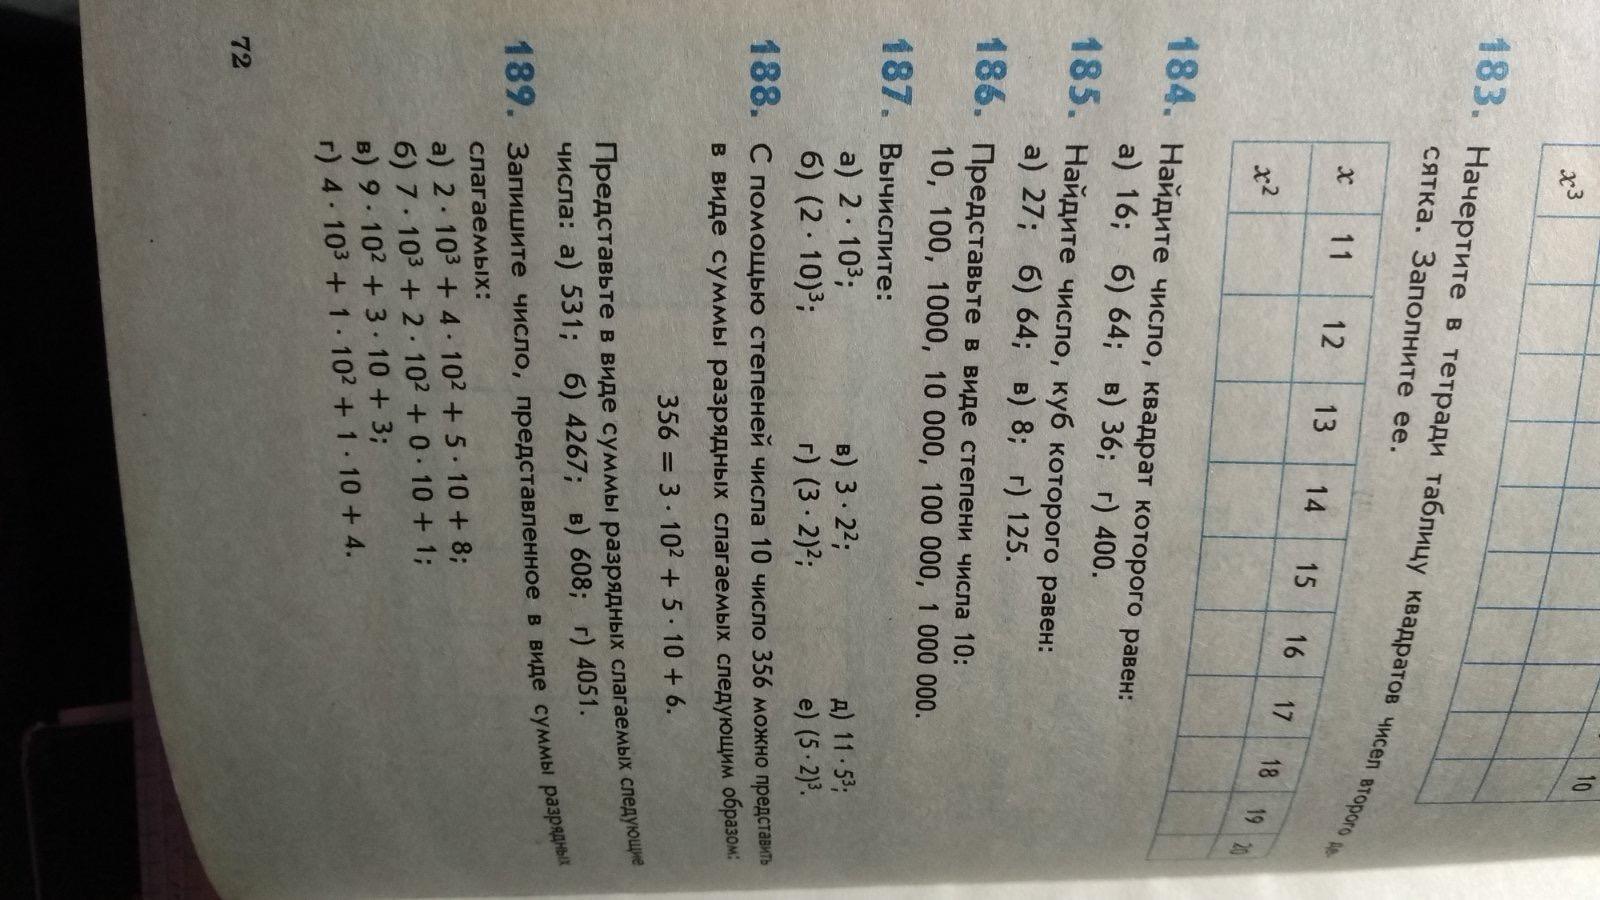 x³
10
183. Начертите в тетради таблицу квадратов чисел второго де-
сятка. Заполните ее.
x 11 12 13 14 15 16 17 18 19 20
x²
184. Найдите число, квадрат которого равен:
а) 16; б) 64; в) 36; г) 400.
185. Найдите число, куб которого равен:
а) 27; б) 64; в) 8; г) 125.
186. Представьте в виде степени числа 10:
10, 100, 1000, 10 000, 100 000, 1 000 000.
187. Вычислите:
а) 2 · 10³; в) 3 · 2²; д) 11 · 5³;
б) (2 · 10)³; г) (3 · 2)²; е) (5 · 2)³.
188. С помощью степеней числа 10 число 356 можно представить
в виде суммы разрядных слагаемых следующим образом:
356 = 3 · 10² + 5 · 10 + 6.
Представьте в виде суммы разрядных слагаемых следующие
числа: а) 531; б) 4267; в) 608; г) 4051.
189. Запишите число, представленное в виде суммы разрядных
слагаемых:
а) 2 · 10³ + 4 · 10² + 5 · 10 + 8;
б) 7 · 10³ + 2 · 10² + 0 · 10 + 1;
в) 9 · 10² + 3 · 10 + 3;
г) 4 · 10³ + 1 · 10² + 1 · 10 + 4.
72